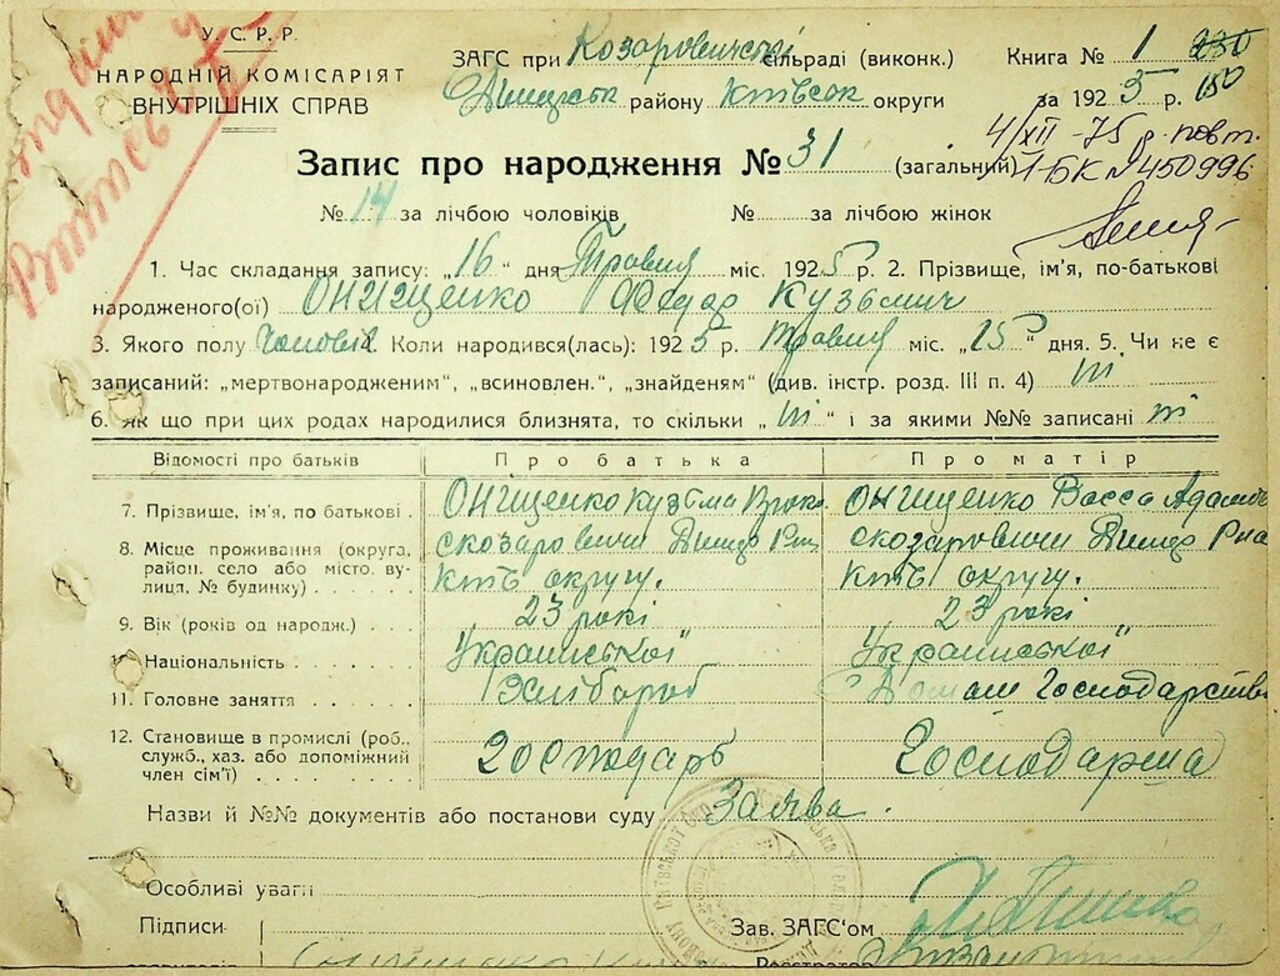 У.С.Р.Р.
НАРОДНІЙ КОМІСАРІЯТ
ВНУТРІШНІХ СПРАВ
ЗАГС при Козаровичській сільраді (виконк.)
району Київськ округи
Книга № 1
за 1925 р. 150
4/XII -75 р. повт.
І-БК № 450996
Запис про народження № 31 (загальний)
№ 14 за лічбою чоловіків № за лічбою жінок
1. Час складання запису: „16" дня Травня міс. 1925 р. 2. Прізвище, ім'я, по-батькові
народженого(ої) Онищенко Федор Кузьмич
3. Якого полу Чоловіч. Коли народився(лась): 1925 р. Травня міс. „15" дня. 5. Чи не є
записаний: „мертвонародженим", „всиновлен.", „знайденям" (див. інстр. розд. III п. 4) ні
6. Як що при цих родах народилися близнята, то скільки „ні" і за якими №№ записані ні
Відомості про батьків Про батька Про матір
7. Прізвище, ім'я, по батькові. Онищенко Кузьма Онищенко Васса
8. Місце проживання (округа, район, село або місто, вулиця, № будинку) с козаровичи с козаровичи
округу. округу.
9. Вік (років од народж.) 23 рокі 23 рокі
10. Національність Української Української
11. Головне заняття Хлібороб Домаш Господарство
12. Становище в промислі (роб., служб., хаз. або допоміжний член сім'ї) Господарь Господарша
Назви й №№ документів або постанови суду Заява.
Особливі уваги
Підписи
Зав. ЗАГС'ом
Реєстратор